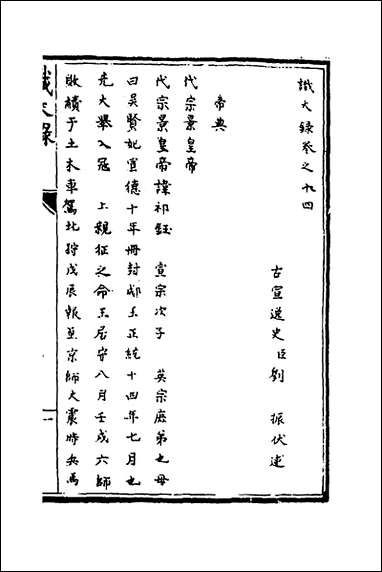 識大録卷之十四
古宣遺史臣劉 振伏述
帝典
代宗景皇帝
代宗景皇帝諱祁鈺 宣宗次子 英宗庶弟也母
曰吳賢妃宣德十年冊封郕王正統十四年七月也
先大舉入寇 上親征之命王居守八月壬戌六師
敗績于土木車駕北狩戊辰報至京師大震時兵馬
識大錄
一